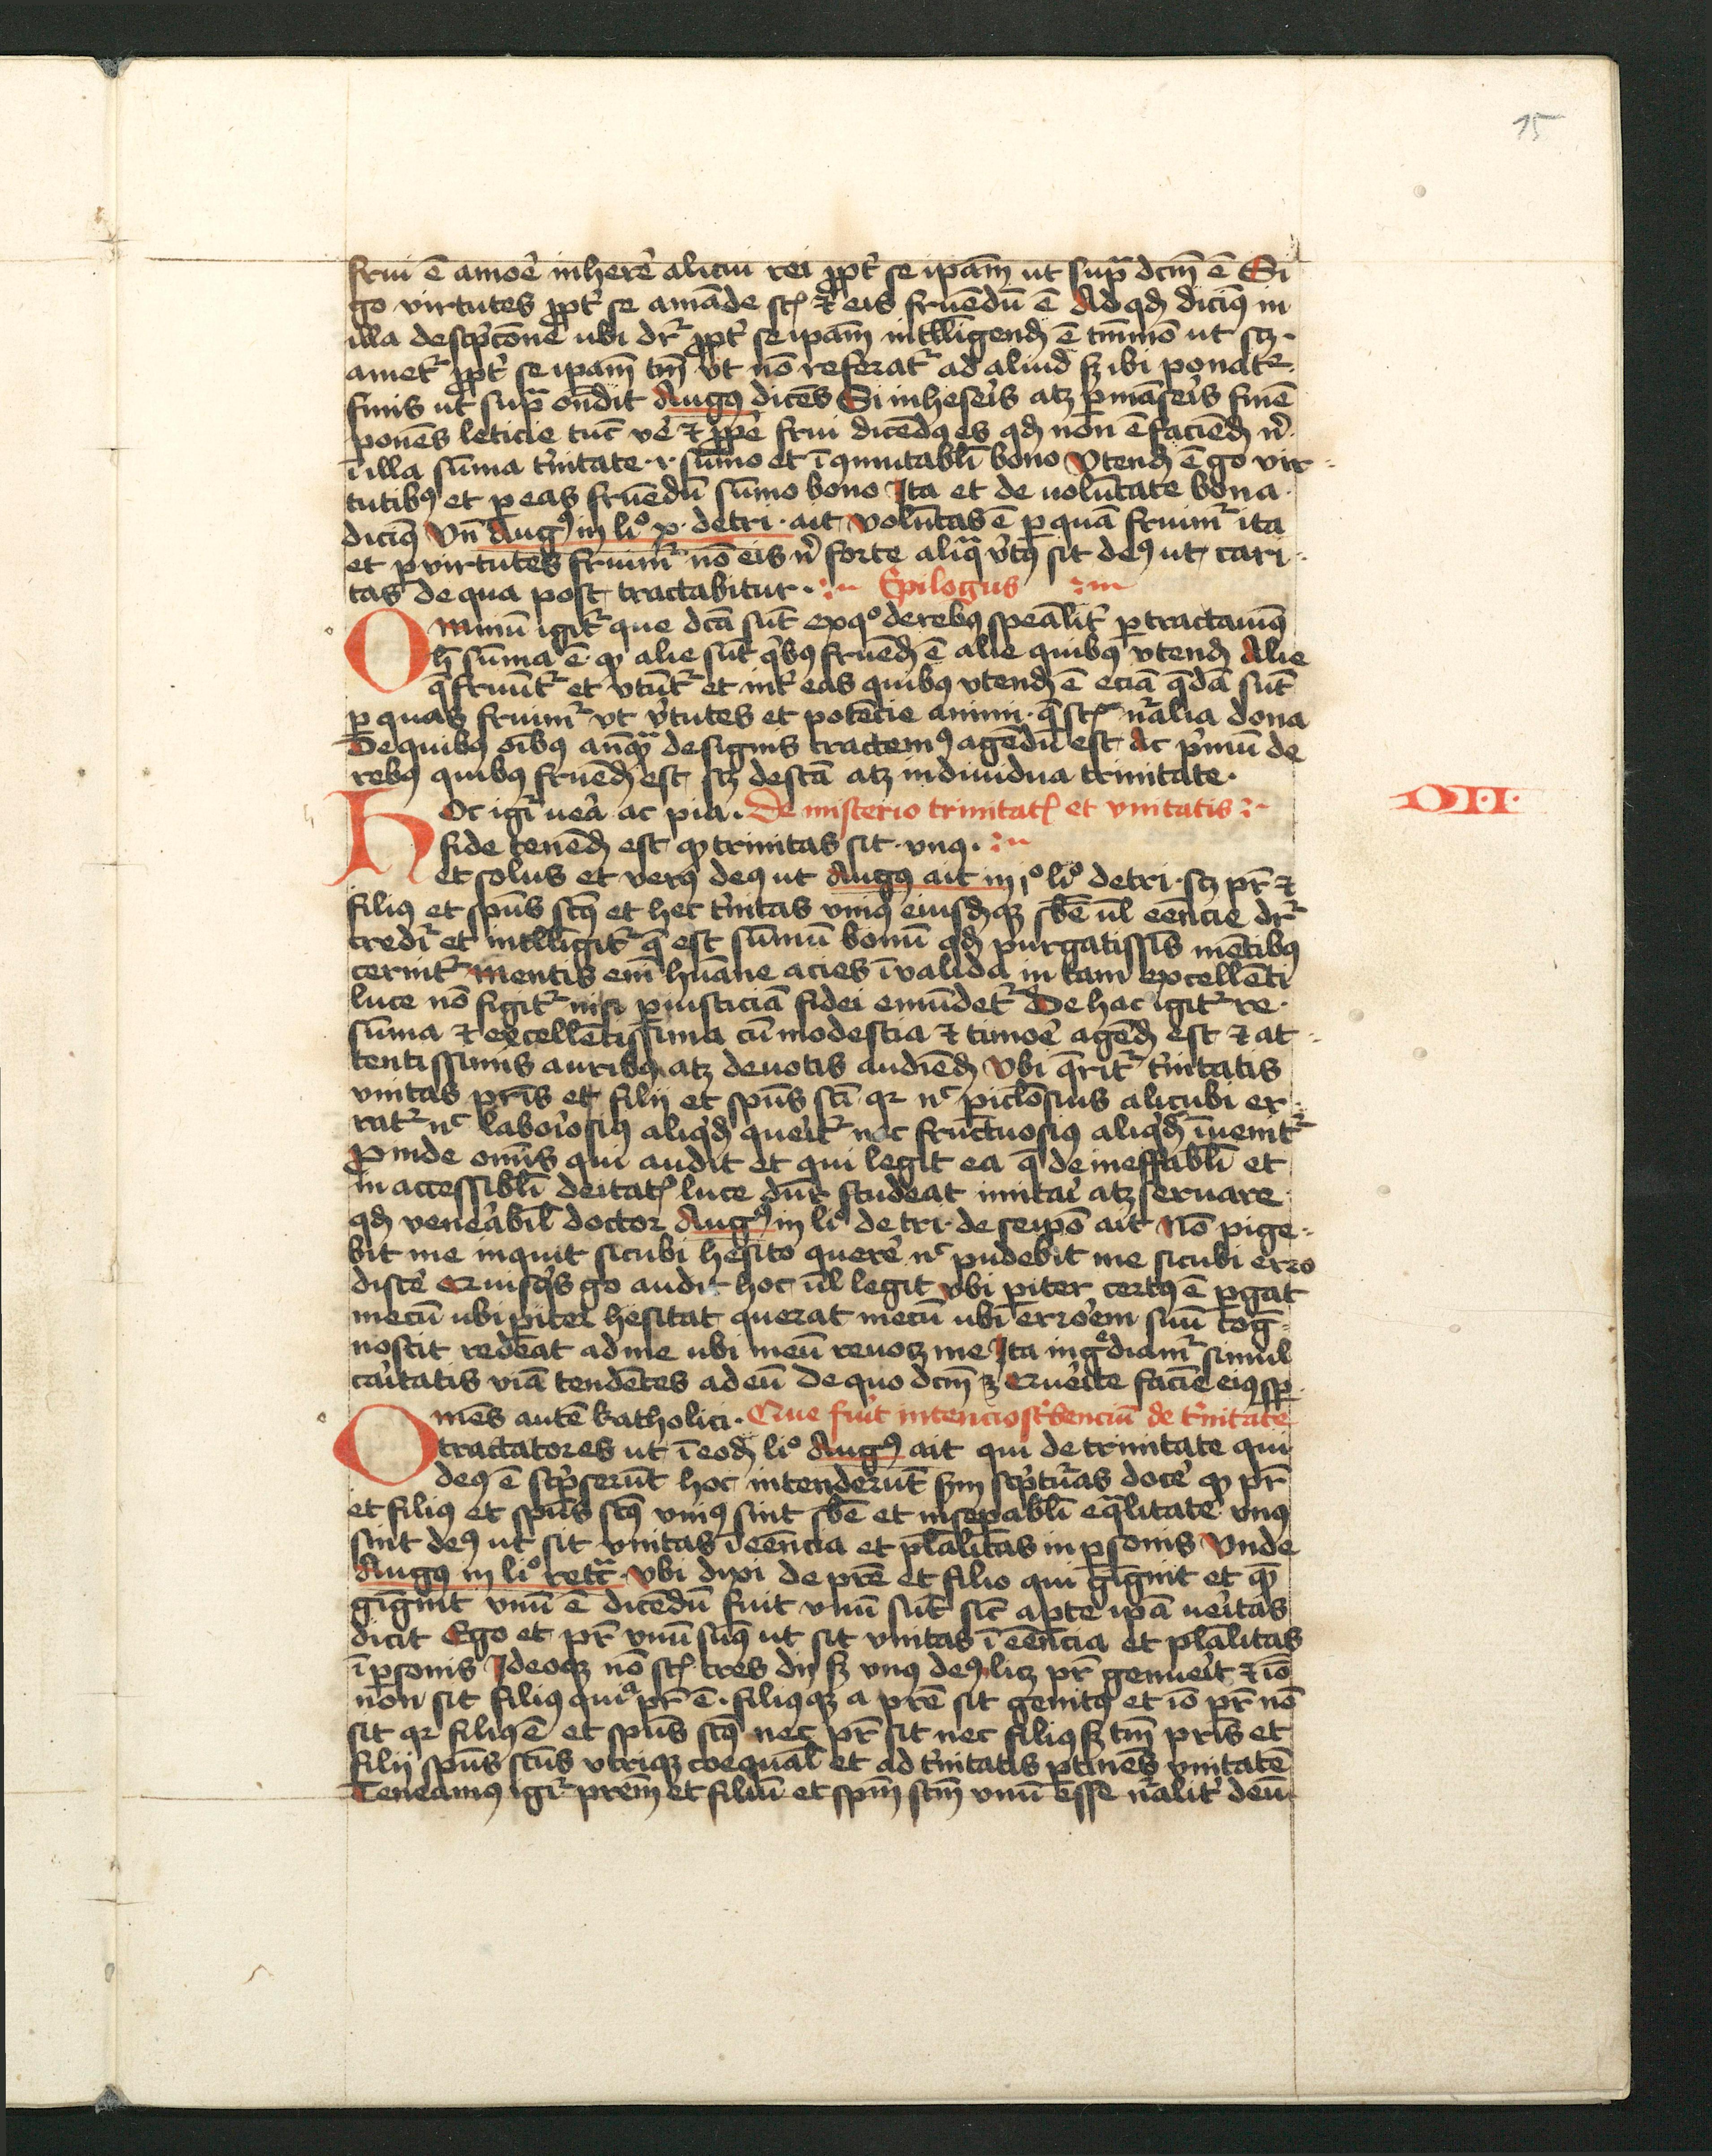 15
frui ē amoē inherē alicui rei ꝓpt̾ se ip̄am ut sup̾ dc̄m ē Si
go virtutes ꝓpt̾ se amāde st̄ ⁊ eis fruēdū ē Ad qd̄ dicimꝰ in
illa descp̄cōne ubi dr̄ ꝓpt̾ se ip̄am intlligend̄ ē tm̄mō ut scꝫ
amet̾ ꝓpt̾ se ip̄am tm̄ ut nō referat̾ ad aliud sꝫ ibi ponat̾
finis ut sup̾ on̄dit Augꝰ dicēs Si inhes̾is atqꝫ p̄māser̾is finē
ponēs leticie tūc ve̾ ⁊ ꝓpe frui dicēdꝰ es qd̄ non ē faciēd̄ n̾
ī illa sūma t̾nitate .i. sūmo et ī ꝯmutabli bono Vtend̄ ē go vir-
tutibꝰ et ꝑ eas fruēdū sūmo bono Ita et de uolūtate bona
dicimꝰ Vn̄ Augꝰ in liº x. de tri. ait volūtas ē ꝑ quā fruim̾ ita
et ꝑ virtutes fruim̾ nō eis n̾ forte aliq̄ v̾tꝰ sit deꝰ ut cari-
tas de qua post tractabitur. Epilogus
Omniū igit̾ que dc̄a sūt ex qº de rebus spēalit̾ ꝑtractauimꝰ
h̄ sūma ē ꝙ alie sūt q̾bꝰ fruēd̄ ē alie quibꝰ vtend̄ Alie
q̄ fruūt̾ et vtūt̾ et int̾ eas quibꝰ vtend̄ ē eciā q̄dā sūt
ꝑ quas fruim̾ vt v̾tutes et potēcie animi. q̄ st̄ n̄ralia dona
De quibꝰ oībꝰ anq̄ de signis tractemꝰ agēdū est Ac p̾mū de
rebꝰ quibꝰ fruēd̄ est scꝫ de sc̄a atqꝫ indiuidua trinitate.
Hoc igr̄ uea̾ ac pia. De misterio trinitat̄ et vnitatis
DII
fide tenēd̄ est ꝙ trinitas sit vnꝰ.
et solus et verꝰ deꝰ ut Augꝰ ait in iº liº de tri. scꝫ pr̄ ⁊
filiꝰ et spūs scꝰ et hec t̾nitas vniꝰ eiusd̄qꝫ sb̄e ul̄ eēncie dr̄
credi̾ et intlligit̾ q̄ est sūmū bonū qd̄ purgatissīs mētibꝰ
cernit̾ Mentis eni̅ hūane acies īvalida in tam excellēti
luce nō figit̾ nisi ꝑ iusticiā fidei emūdet̾ De hac igit̾ re
sūma ⁊ excellētissima cū modestia ⁊ timoē agēd̄ est ⁊ at-
tentissimis auribꝰ atqꝫ deuotis audiēd̄ Vbi q̄rit̾ t̾nitatis
vnitas pr̄is et filij et spūs sc̄i qr nᶜ piclosius alicubi er-
rat̾ nᶜ laboriosiꝰ aliqd̄ queit̾ nec fructuosiꝰ aliqd̄ īuenit̾
Proinde omīs qui audit et qui legit ea q̄ de ineffabli et
in accessibli deitat̄ luce dn̄r studeat imitai̾ atqꝫ seruare
qd̄ veneābil̄ doctor Augꝰ in liº de tri. de seipō ait Nō pige-
bit me inquit sicubi hesito querē nᶜ pudebit me sicubi erro
discē Quisqs̾ go audit hoc ul̄ legit vbi piter certꝰ ē ꝑgat
mecū ubi piter hesitat querat mecū ubi erroēm suū cog-
noscit redeat ad me ubi meū reuocꝫ me Ita ingdiam̾ simul
caitatis viā tendētes ad eū De quo dc̄m ē Querite faciē eiꝰ sp̄
Omēs autē katholici. Que fuit intencio sc̾bencium de t̾nitate
tractatores ut ī eod̄ liº Augꝰ ait qui de trinitate qui
deꝰ ē scp̾serūt hoc intenderūt scd̄m scp̾turas docē ꝙ pr̄
et filiꝰ et spūs scꝰ vniꝰ sint sb̄e et insepabli eq̄litate vnꝰ
sint deꝰ ut sit vnitas ī eēncia et plalitas in ꝑsonis Vnde
Augꝰ in liº retc̾ Vbi dixi de pr̄e et filio qui gignit et quē
gignit vnū ē dicēdū fuit vnū sūt sic̄ apte ip̄a ueitas
dicit Ego et pr̄ vnū sumꝰ ut sit vnitas ī eēncia et plalitas
ī ꝑsonis Ideoqꝫ nō st̄ tres dij sꝫ vnꝰ deꝰ licꝫ pr̄ genueit ⁊ iō
non sit filius quia pr̄ ē. filiusqꝫ a pr̄e sit genitꝰ et iō pr̄ nō
sit qr filiꝰ ē et spūs scꝰ nec pr̄ sit nec filiꝰ sꝫ tm̄ pr̄is et
filij spūs sc̄us vtriqꝫ coequal̄ et ad t̾nitatis ptinēs vnitatē
Teneamus igr̄ prēm et filiū et spm̄ sc̄m vnū esse n̄ralit̾ deū